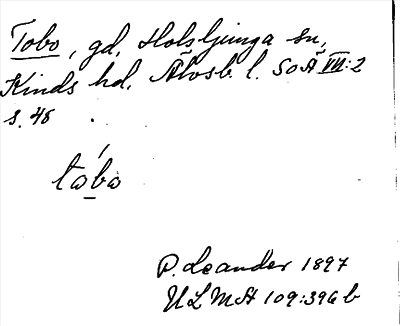 Tobo, gd, Holsljunga sn,
Kinds hd, Älvsb. l. SOÄ VII:2
s. 48
to̱bo
P. Leander 1897
ULMA 109:396 b